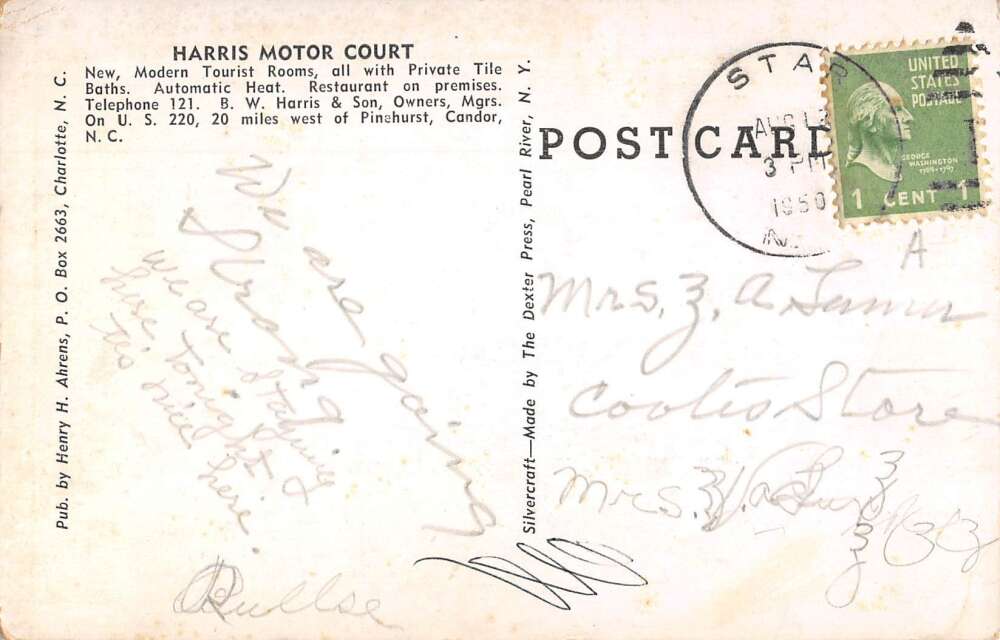 HARRIS MOTOR COURT
New, Modern Tourist Rooms, all with Private Tile
Baths. Automatic Heat. Restaurant on premises.
Telephone 121. B. W. Harris & Son, Owners, Mgrs.
On U. S. 220, 20 miles west of Pinehurst, Candor,
N. C.
Pub. by Henry H. Ahrens, P. O. Box 2663, Charlotte, N. C.
We are going
Strong
we are staying
here, tonight &
tis nice here.
Silvercraft—Made by The Dexter Press, Pearl River, N. Y.
POST CARD
STAR
AUG
3 PM
1950
N.
UNITED
STATES
POSTAGE
GEORGE
WASHINGTON
1789-1797
1 CENT 1
A
Mrs. Z. A.
Cootes Store
Mrs. Z.